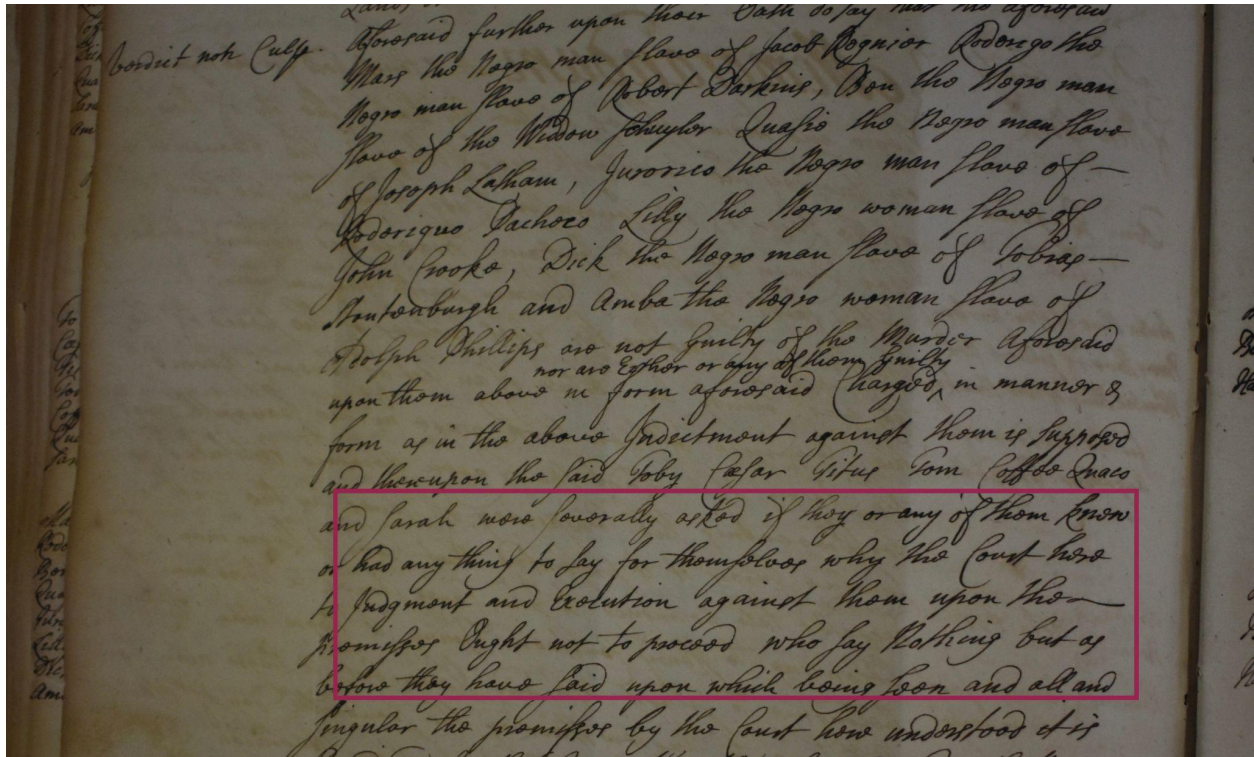 verdict not Culp.
aforesaid further upon their Oath do say that the aforesaid
Mars the Negro man slave of Jacob Regnier Roderigo the
Negro man slave of Robert Darkins, Ben the Negro man
slave of the Widow Schuyler Quasie the Negro man slave
of Joseph Latham, Furorico the Negro man slave of —
Roderiguo Pacheco Lilly the Negro woman slave of
John Crooke, Dick the Negro man slave of Tobias —
Stoutenburgh and Amba the Negro woman slave of
Adolph Phillips are not Guilty of the Murder aforesaid
nor are Eyther or any of them Guilty
upon them above in form aforesaid Charged ^ in manner &
form as in the above Indictment against them is supposed
and thereupon the said Toby Cæsar Titus Tom Coffee Quaco
and Sarah were severally asked if they or any of them knew
or had any thing to say for themselves why the Court here
to Judgment and Execution against them upon the —
premisses Ought not to proceed who say Nothing but as
before they have said upon which being seen and all and
singular the premisses by the Court here understood it is